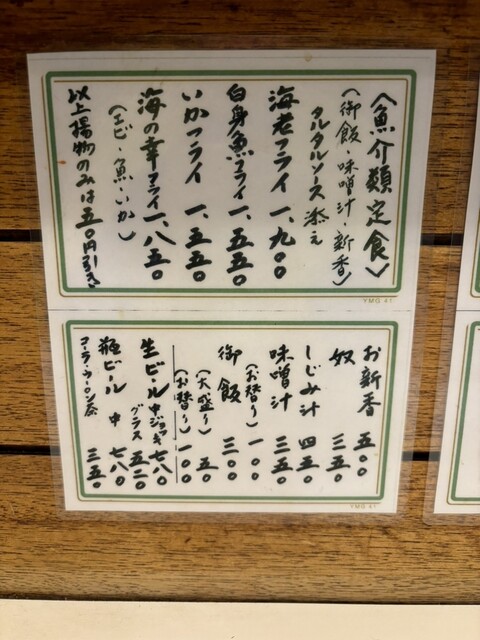 〈魚介類定食〉
(御飯・味噌汁・新香)
タルタルソース添え
海老フライ 一、九〇〇
白身魚フライ 一、五五〇
いかフライ 一、五五〇
海の幸フライ 一、八五〇
(エビ・魚・いか)
以上揚物のみは五〇円引き
YMG 41
お新香 五〇〇
奴 三五〇
しじみ汁 四五〇
味噌汁 三五〇
(お替り) 一〇〇
御飯 三〇〇
(大盛り) 五〇
(お替り) 一〇〇
生ビール 中ジョッキ 七八〇
グラス 五二〇
瓶ビール 中 七八〇
コーラ・ウーロン茶 三五〇
YMG 41